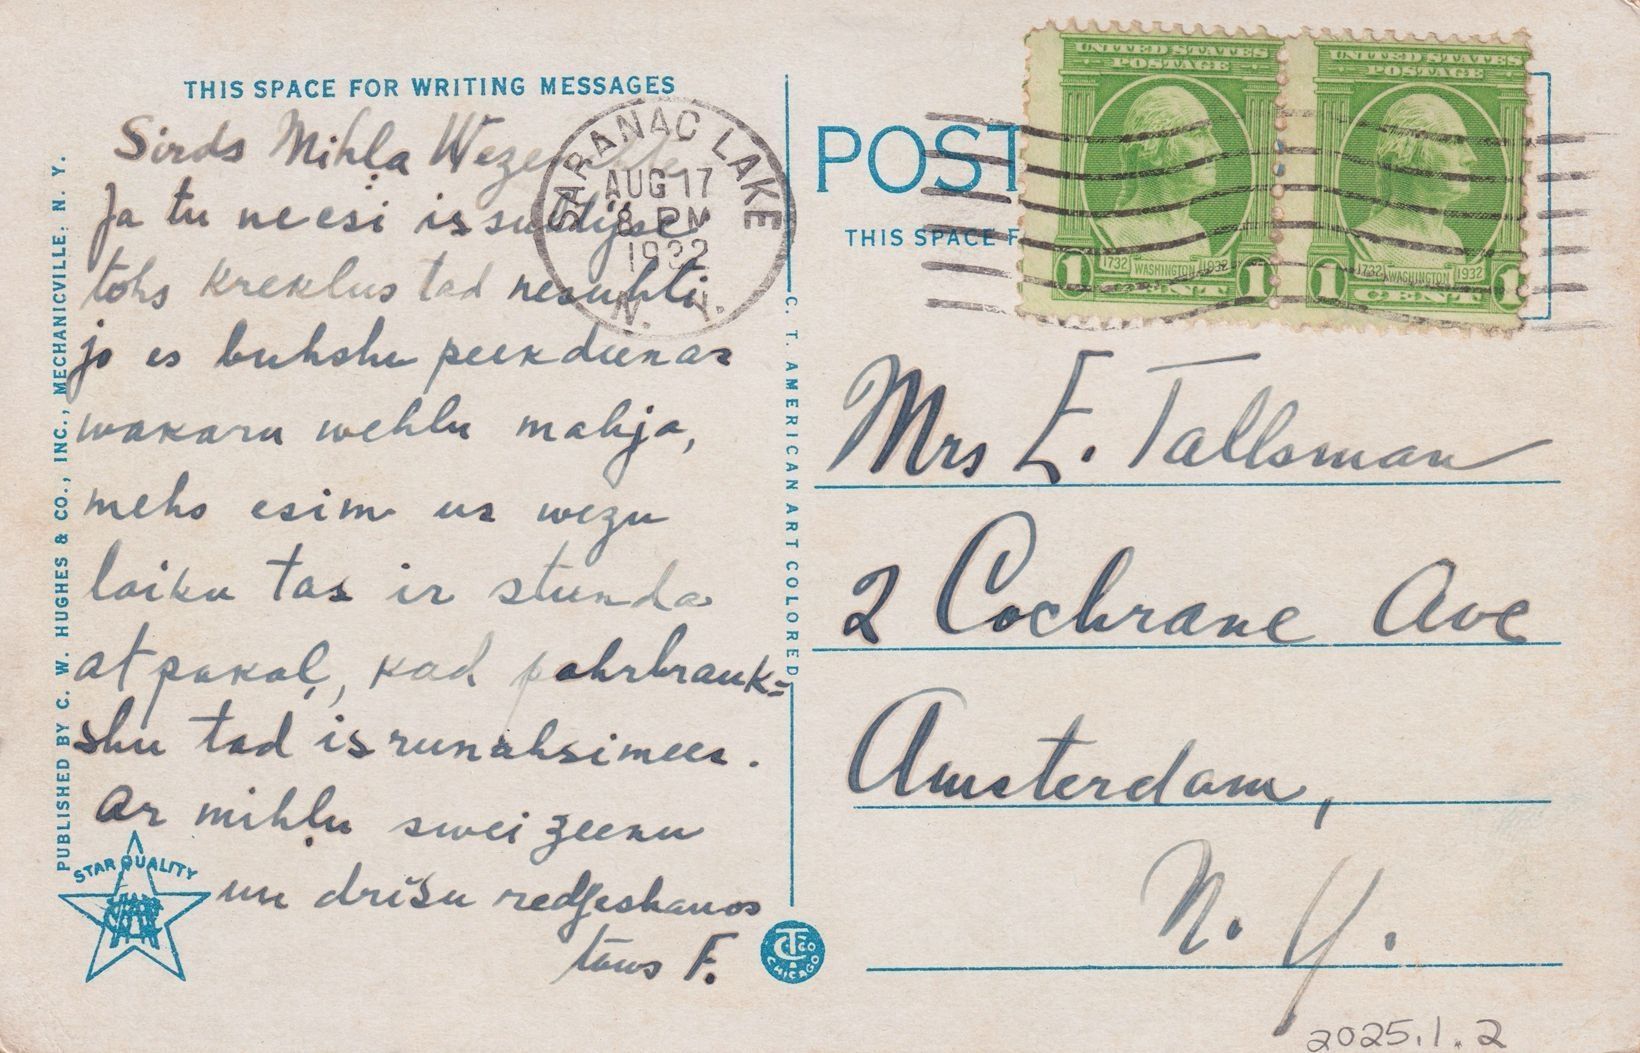 THIS SPACE FOR WRITING MESSAGES
Sirds Mihļa
Ja tu neesi
tohs kreklus tad nesuhti
jo es buhshu peekdeenas
wakaru wehlu mahja,
mehs esim us wezu
laiku tas ir stunda
atpakaļ, kad pahrbrauk=
shu tad isrunahsimees.
Ar mihļu sweizeenu
un drīsu redseshanos
taws F.
PUBLISHED BY C. W. HUGHES & CO., INC., MECHANICVILLE, N. Y.
STAR QUALITY
SARANAC LAKE
AUG 17
8 PM
1932
N. Y.
C. T. AMERICAN ART COLORED
C T & CO
CHICAGO
POST
THIS SPACE F
UNITED STATES
POSTAGE
1732 WASHINGTON 1932
1 CENT 1
UNITED STATES
POSTAGE
1732 WASHINGTON 1932
1 CENT 1
Mrs E. Tallsman
2 Cochrane Ave
Amsterdam,
N. Y.
2025.1.2